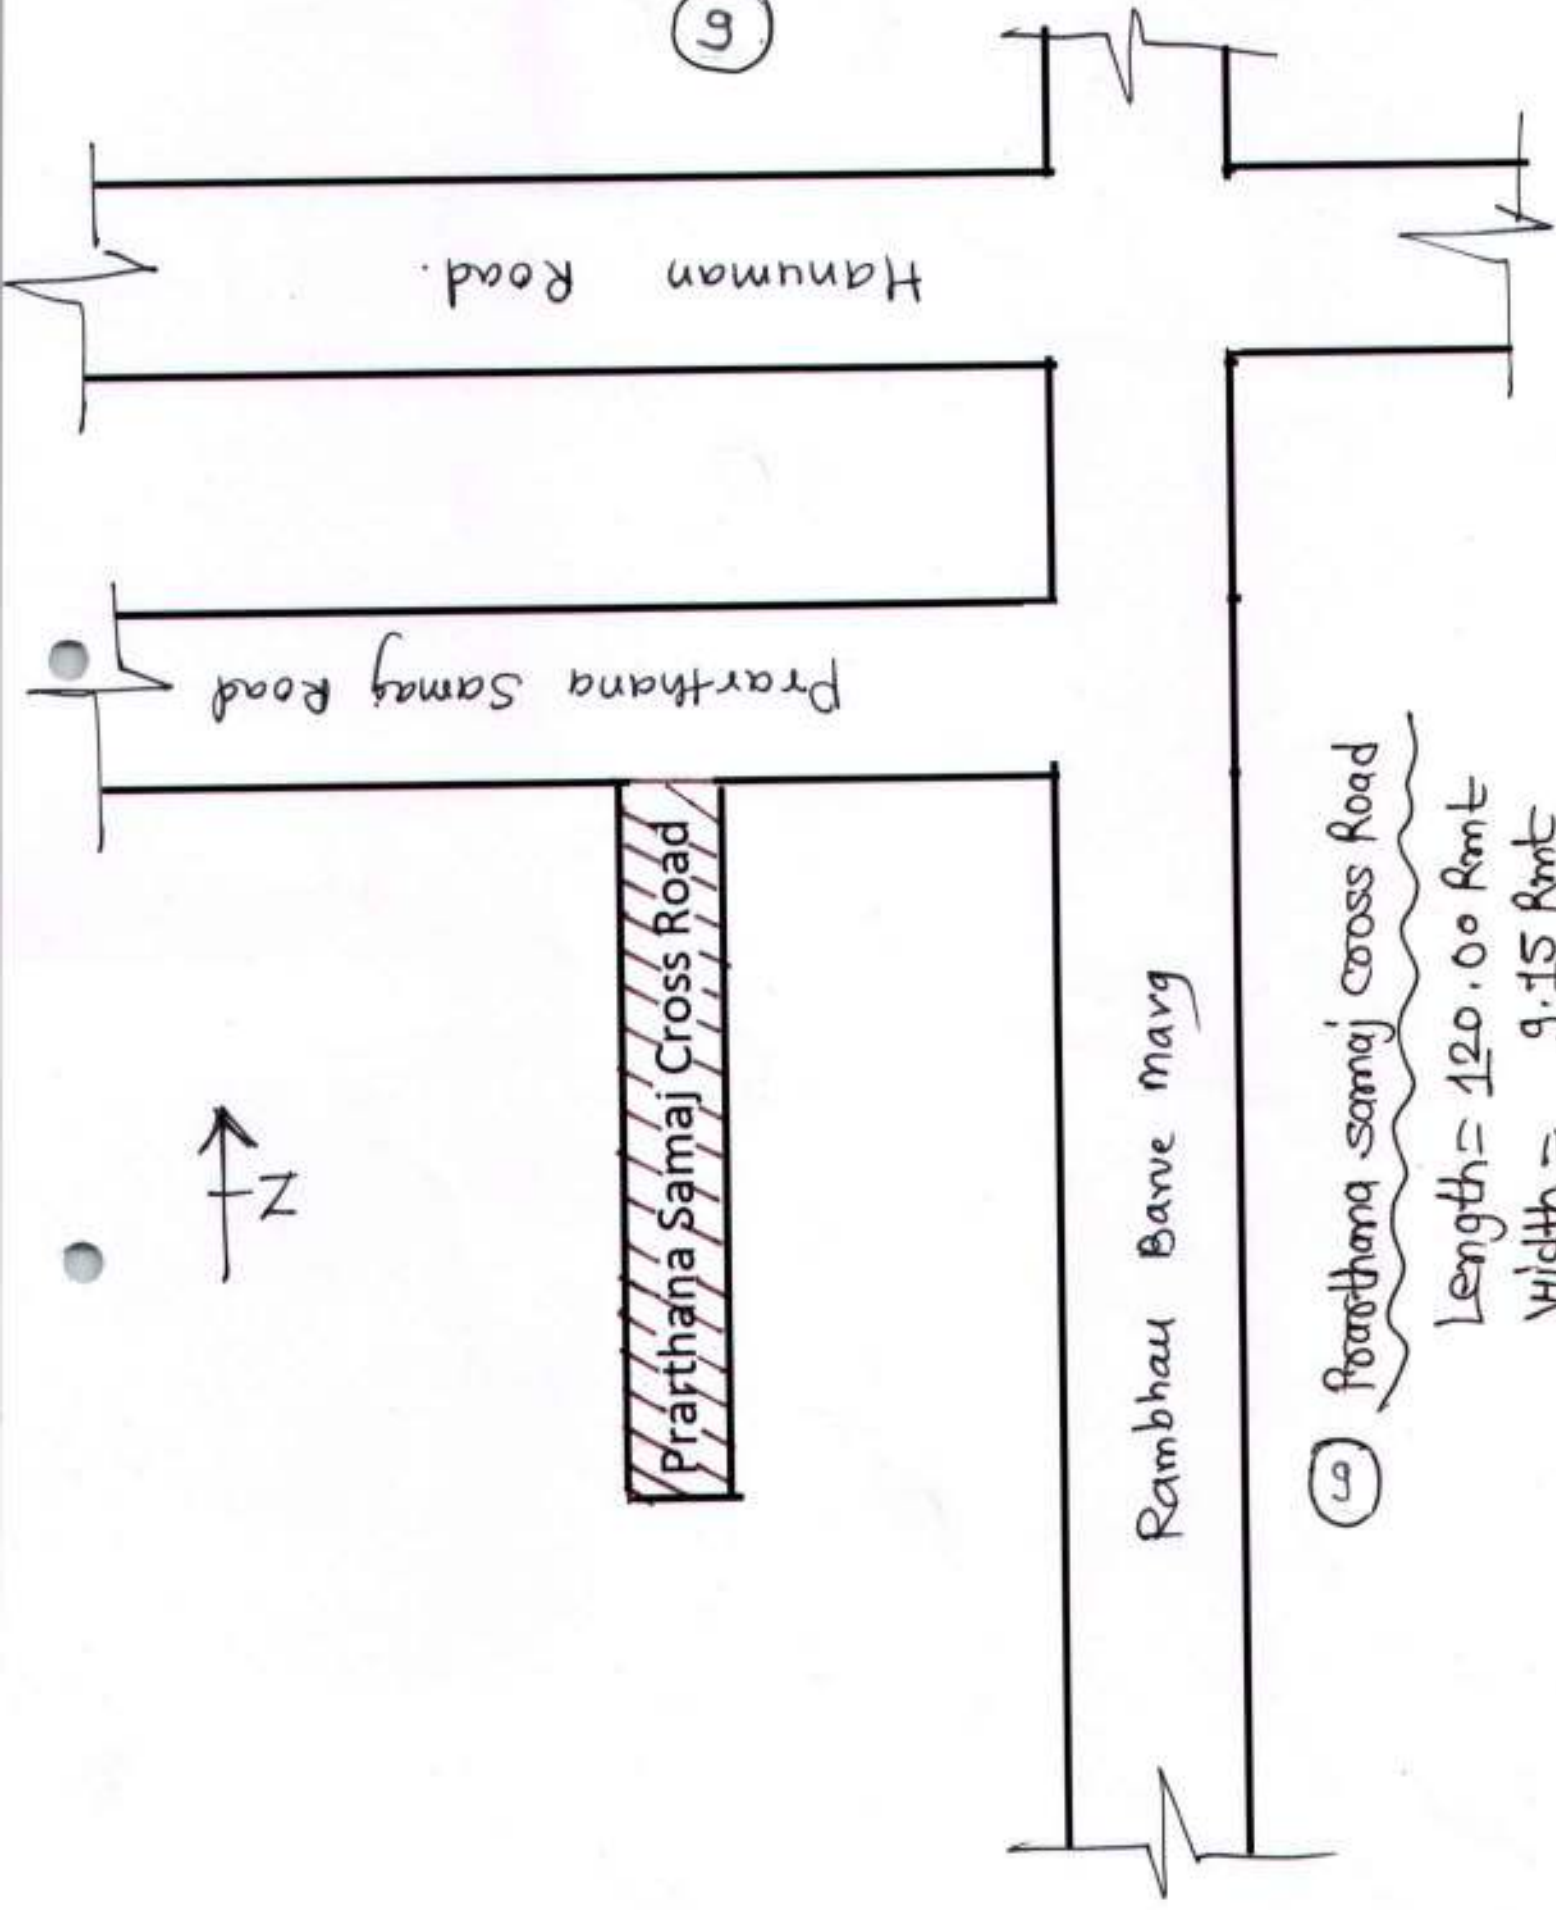 9
Hanuman Road.
Prarthana Samaj Road
Prarthana Samaj Cross Road
N
Rambhau Barve Marg
9 Prarthana samaj cross Road
Length = 120.00 Rmt
Width = 9.15 Rmt